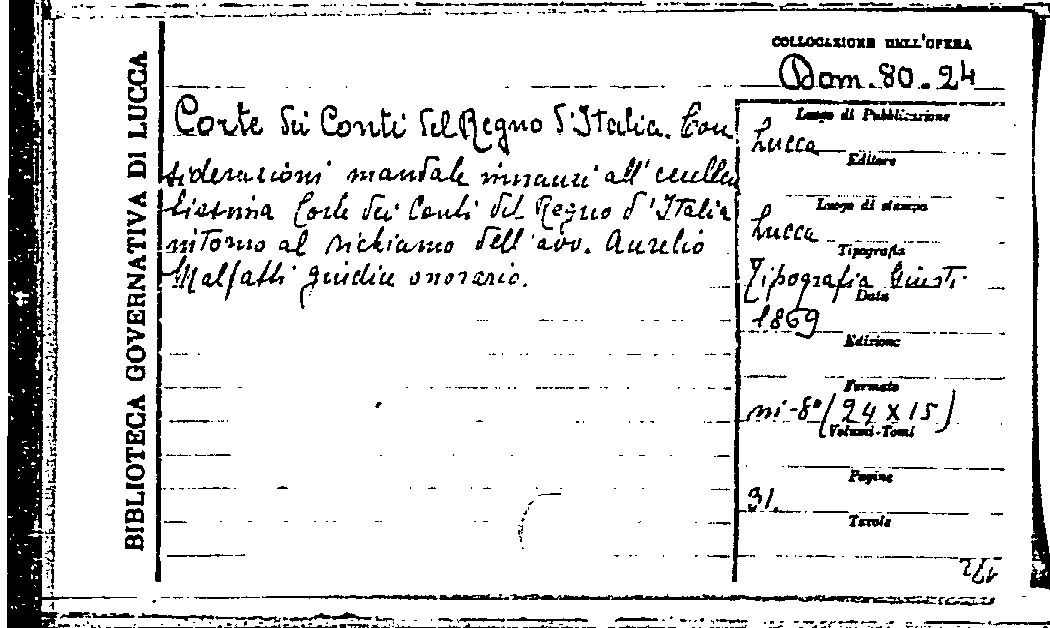 BIBLIOTECA GOVERNATIVA DI LUCCA
COLLOCAZIONE DELL'OPERA
Dom. 80. 24
Corte dei Conti del Regno d'Italia. Con
siderazioni mandate innanzi all'eccellen
tissima Corte dei Conti del Regno d'Italia
intorno al richiamo dell'avv. Aurelio
Malfatti giudice onorario.
Luogo di Pubblicazione
Lucca
Editore
Luogo di stampa
Lucca
Tipografia
Tipografia Giusti
Data
1869
Edizione
Formato
in-8° (24 x 15)
Volumi-Tomi
Pagine
31.
Tavole